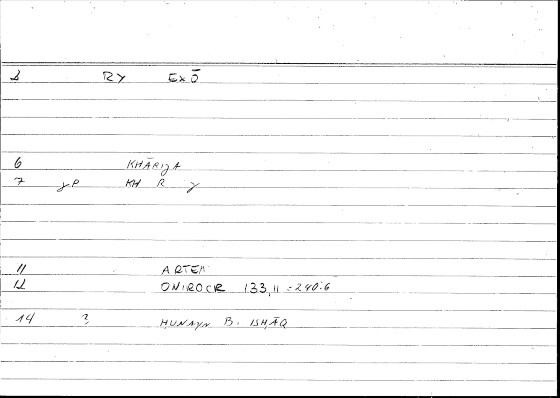 2 RY EXŌ
6 KHĀRIJA
7 jP KH R j
11 ARTEM
12 ONIROCR 133,11 = 240:6
14 ? ḤUNAYN B. ISḤĀQ